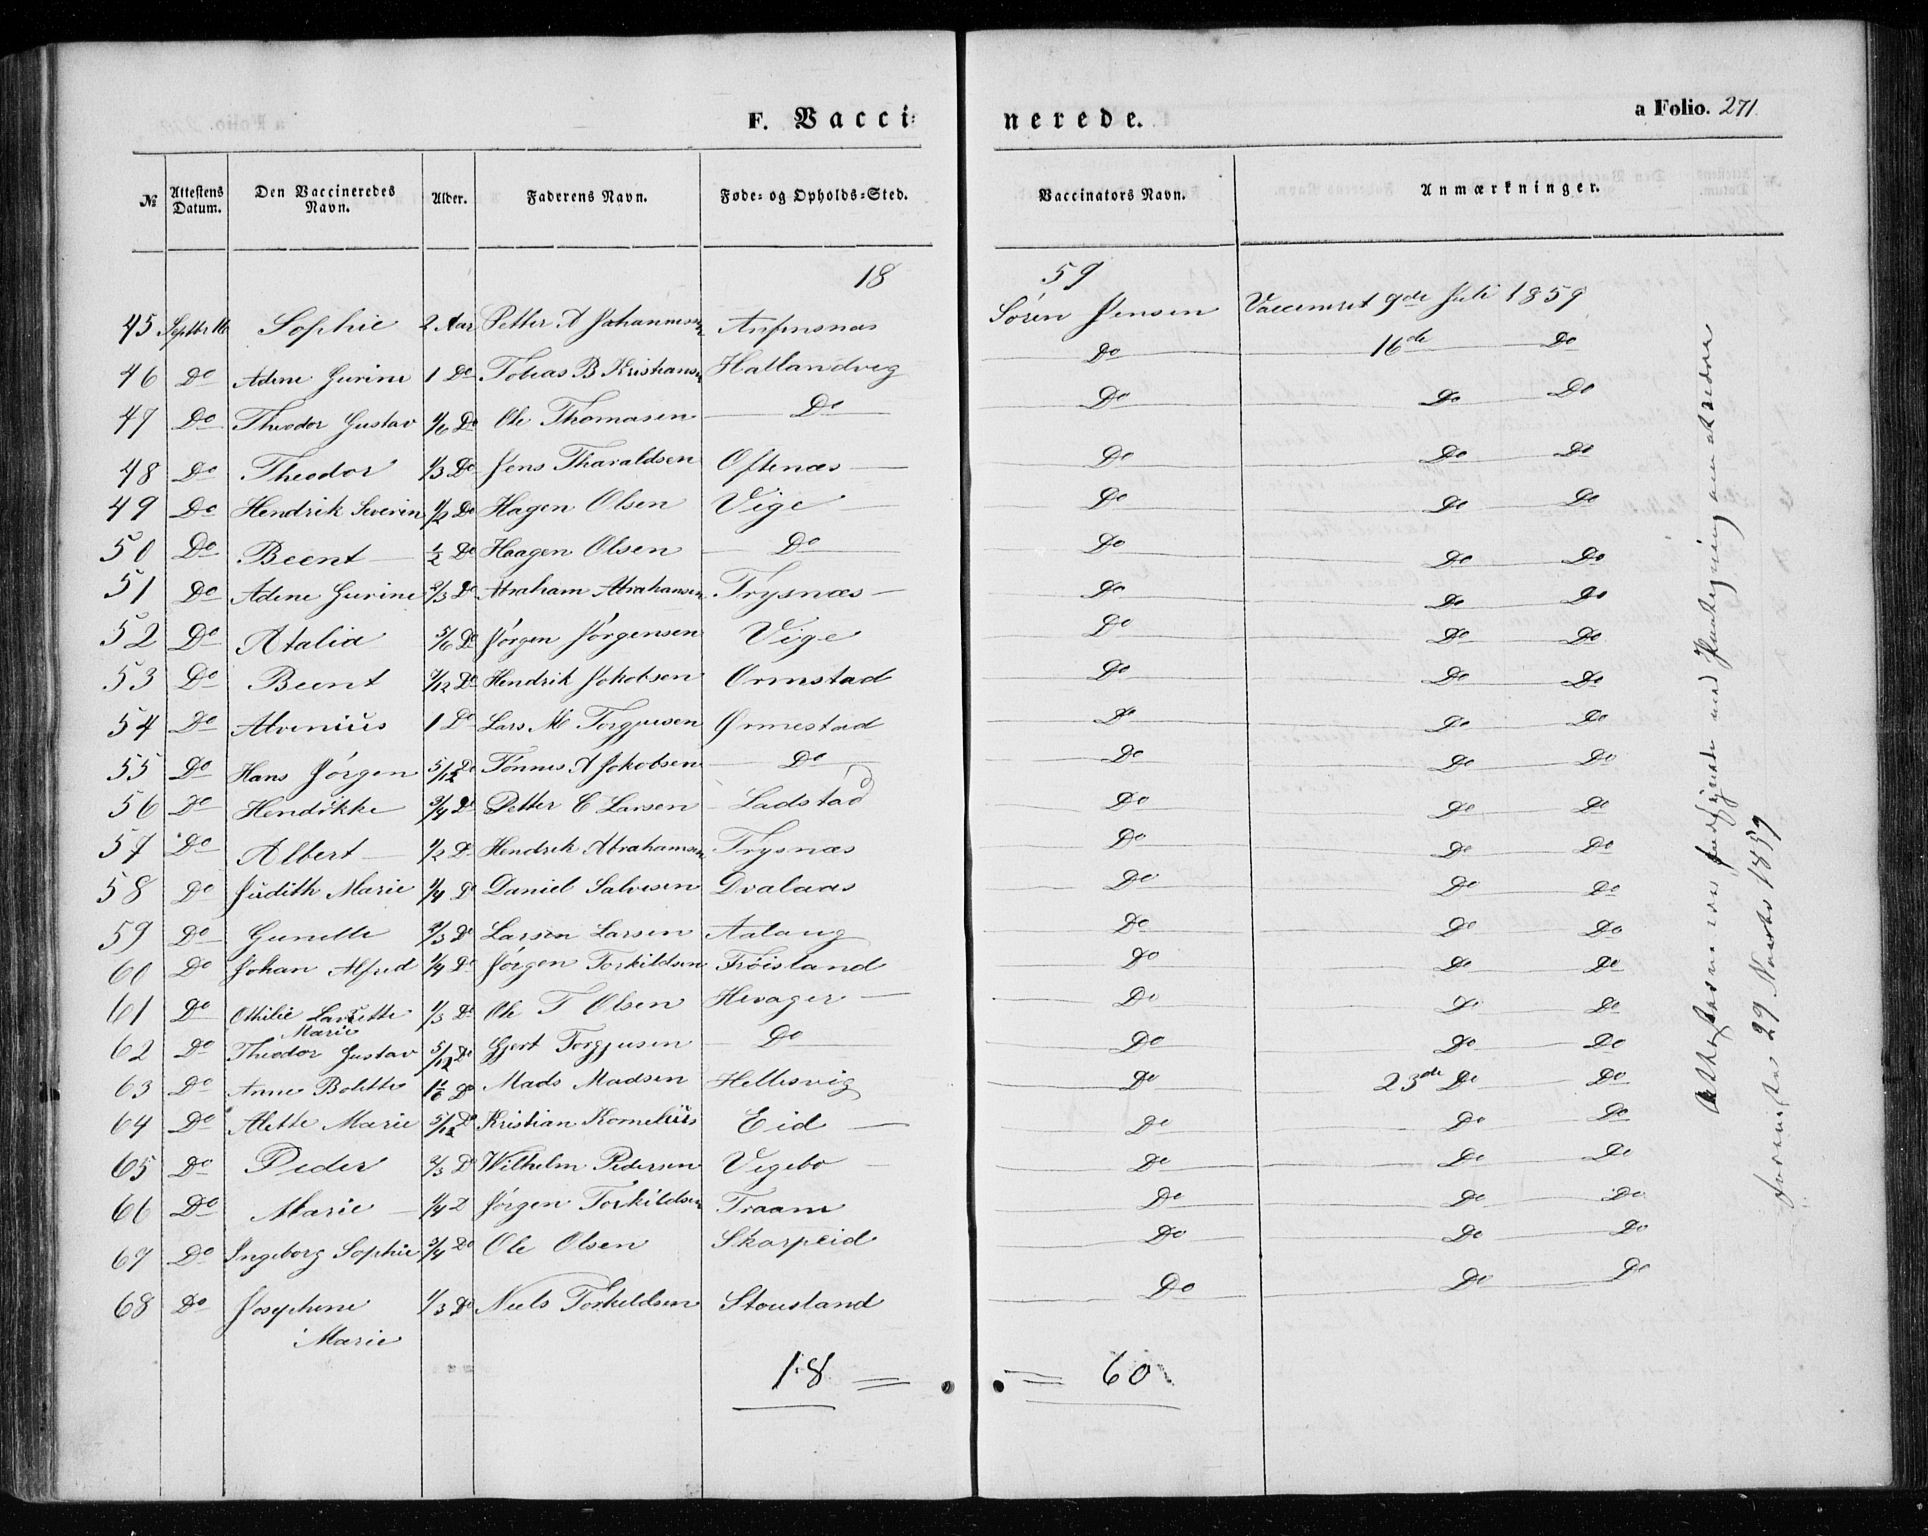 F. Vacci= nerede. a Folio. 271
№ Attestens Datum. Den Vaccineredes Navn. Alder. Faderens Navn. Føde= og Opholds=Sted. Vaccinators Navn. Anmærkninger.
18 59
45 Septbr 16 Sophie 2 Aar Petter A Johannesen Anfinsnæs Søren Jensen Vaccineret 9de Juli 1859
46 Do Adene Gurine 1 Do Tobias B Kristiansen Hallandvig Do 16de Do
47 Do Theodor Gustav 1/6 Do Ole Thomasen Do Do Do Do
48 Do Theodor 1/3 Do Jens Tharaldsen Oftenæs Do Do Do
49 Do Hendrik Severin 1/2 Do Hagen Olsen Vige Do Do Do
50 Do Beent 1/2 Do Haagen Olsen Do Do Do Do
51 Do Adene Gurine 2/3 Do Abraham Abrahamsen Trysnæs Do Do Do
52 Do Atalia 5/6 Do Jørgen Jørgensen Vige Do Do Do
53 Do Beent 7/12 Do Hendrik Jokobsen Ormstad Do Do Do
54 Do Alvenius 1 Do Lars M Torgjusen Ormestad Do Do Do
55 Do Hans Jørgen 5/12 Do Tønnes A Jokobsen Do Do Do Do
56 Do Hendikke 3/4 Do Petter E Larsen Ladstad Do Do Do
57 Do Albert 1/2 D Hendrik Abrahamsen Trysnæs Do Do Do
58 Do Judith Marie 1/4 D Daniel Salvesen Dvalaas Do Do Do
59 Do Gunelle 2/3 D Larsen Larsen Aalaug Do Do Do
60 Do Johan Alfred 1/4 Do Jørgen Torkildsen Frøisland Do Do Do
61 Do Othilie Lavrette Marie 1/3 Do Ole T Olsen Hevager Do Do Do
62 Do Theodor Gustav 5/12 Do Gjert Torgjusen Do Do Do Do
63 Do Anne Bolette 1 1/6 D Mads Madsen Hellesvig Do 23de Do Do
64 Do Alette Marie 5/12 D Kristian Kornelius Eid Do Do Do
65 Do Peder 2/3 D Wilhelm Pedersen Vegebo Do Do Do
66 Do Marie 1/4 D Jørgen Torkildsen Traam Do Do Do
67 Do Ingeborg Sophie 3/4 Do Ole Olsen Skarpeid Do Do Do
68 Do Josephine Marie 1/3 Do Niels Torkeldsen Stousland Do Do Do
18 = = 60
Attesterne med
29 1859